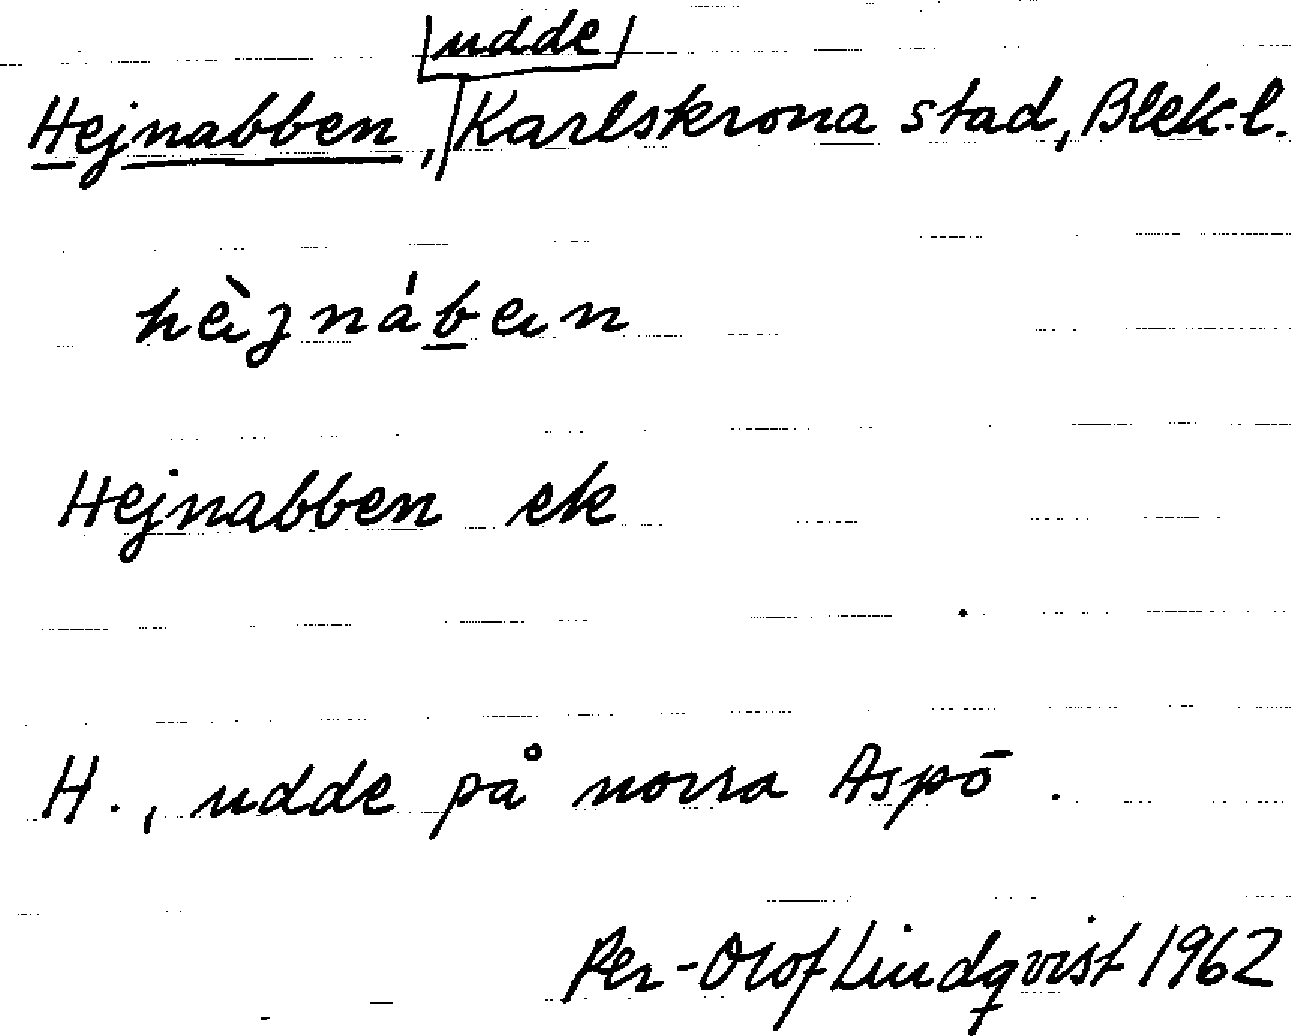 udde
Hejnabben, Karlskrona stad, Blek. l.
Hejnabben ek
H., udde på norra Aspö.
Per-Olof Lindqvist 1962